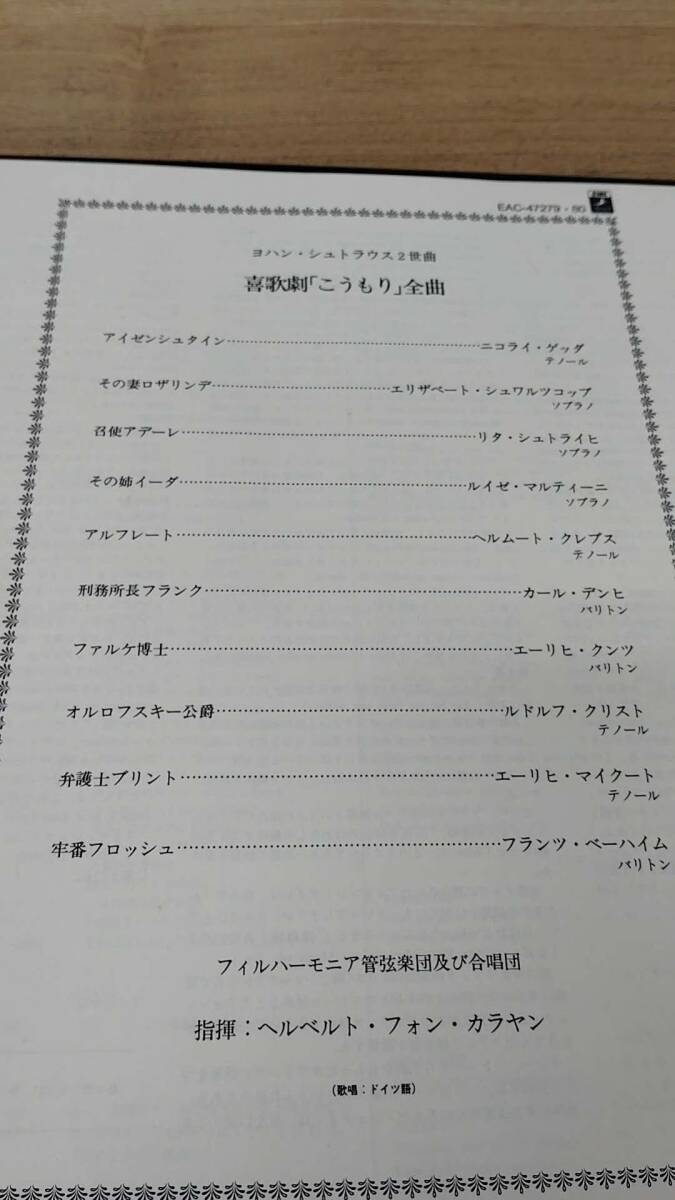 EAC-47279・80
ヨハン・シュトラウス2世曲
喜歌劇「こうもり」全曲
アイゼンシュタイン……ニコライ・ゲッダ
テノール
その妻ロザリンデ……エリザベート・シュワルツコップ
ソプラノ
召使アデーレ……リタ・シュトライヒ
ソプラノ
その姉イーダ……ルイゼ・マルティーニ
ソプラノ
アルフレート……ヘルムート・クレプス
テノール
刑務所長フランク……カール・デンヒ
バリトン
ファルケ博士……エーリヒ・クンツ
バリトン
オルロフスキー公爵……ルドルフ・クリスト
テノール
弁護士ブリント……エーリヒ・マイクート
テノール
牢番フロッシュ……フランツ・ベーハイム
バリトン
フィルハーモニア管弦楽団及び合唱団
指揮：ヘルベルト・フォン・カラヤン
（歌唱：ドイツ語）